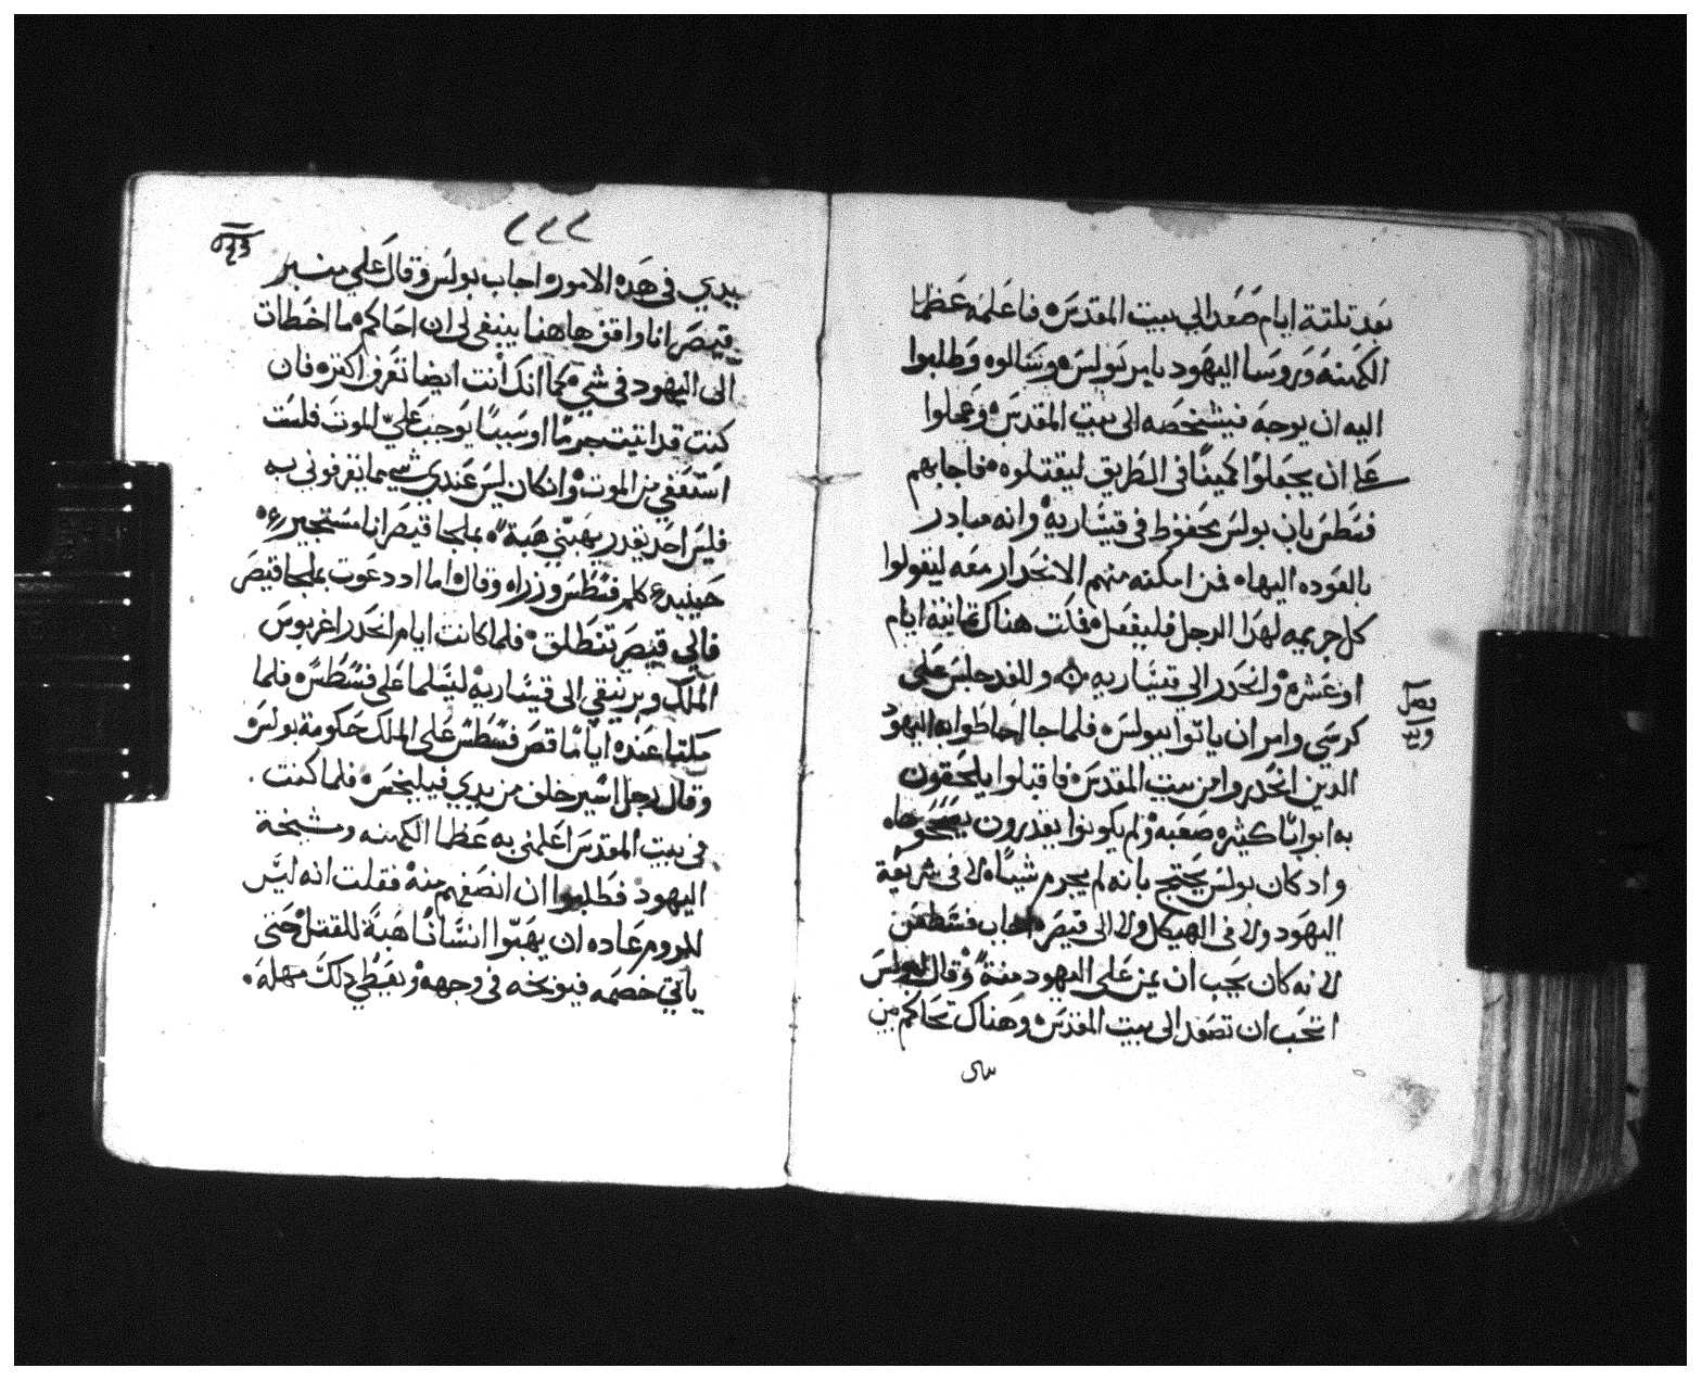 بعد تلتة ايام صعد الي بيت المقدس فاعلمه عظما
الكهنه وروسا اليهود بامر بولس وسالوه وطلبوا
اليه ان يوجه فيشخصه الى بيت المقدس وعملوا
على ان يجعلوا كمينا في الطريق ليقتلوه فاجابهم
فسطس بان بولس محفوظ في قيساريه وانه مبادر
بالعوده اليها فمن امكنه منهم الانحدار معه ليقولوا
كل جريمه لهدا الرجل فليفعل فلت هناك تمانية ايام
او عشره وانحدر الي قيساريه وللغد جلس علي
فصل
كرسي وامر ان ياتوا ببولس فلما جا احاطوا به اليهود
الدين انحدروا من بيت المقدس فاقبلوا يلحقون
به ابوابا كثيره صعبه ولم يكونوا يقدرون يصححوها
واد كان بولس يحتج بانه لم يجرم شيا لا في شريعة
اليهود ولا في الهيكل ولا الى قيصر اجاب فسطس
لانه كان يجب ان يمن على اليهود منة وقال لبولس
اتحب ان تصعد الى بيت المقدس وهناك تحاكم من
٢٢٢
يدي في هده الامور اجاب بولس وقال علي منبر
قيصر انا واقف هاهنا ينبغي لي ان احاكم ما اخطات
الى اليهود في شي كما انك انت ايضا تعرف اكتر فان
كنت قد اتيت جرما او سببا يوجب علي الموت فلست
استعفي من الموت وانكان ليس عندي شي مما يقرفوني به
فليس احد يقدر يهبني هبة بملجا قيصر انا مستجير
حينيد كلم فسطس وزراه وقال اما اد دعوت بملجا قيصر
فالي قيصر تنطلق فلما كانت ايام انحدر اغربوس
الملك وبرنيقي الى قيساريه ليسلما على فسطس فلما
مكتا عنده اياما قص فسطس على الملك حكومة بولس
وقال رجل اسير خلف من يدي فيليخس فلما كنت
في بيت المقدس اعلمني به عظما الكهنه ومشيخة
اليهود فطلبوا ان انصفهم منه فقلت انه ليس
للروم عاده ان يهبوا انسانا هبة للقتل حتى
ياتي خصمه فيوبخه في وجهه ويعطي دلك مهله